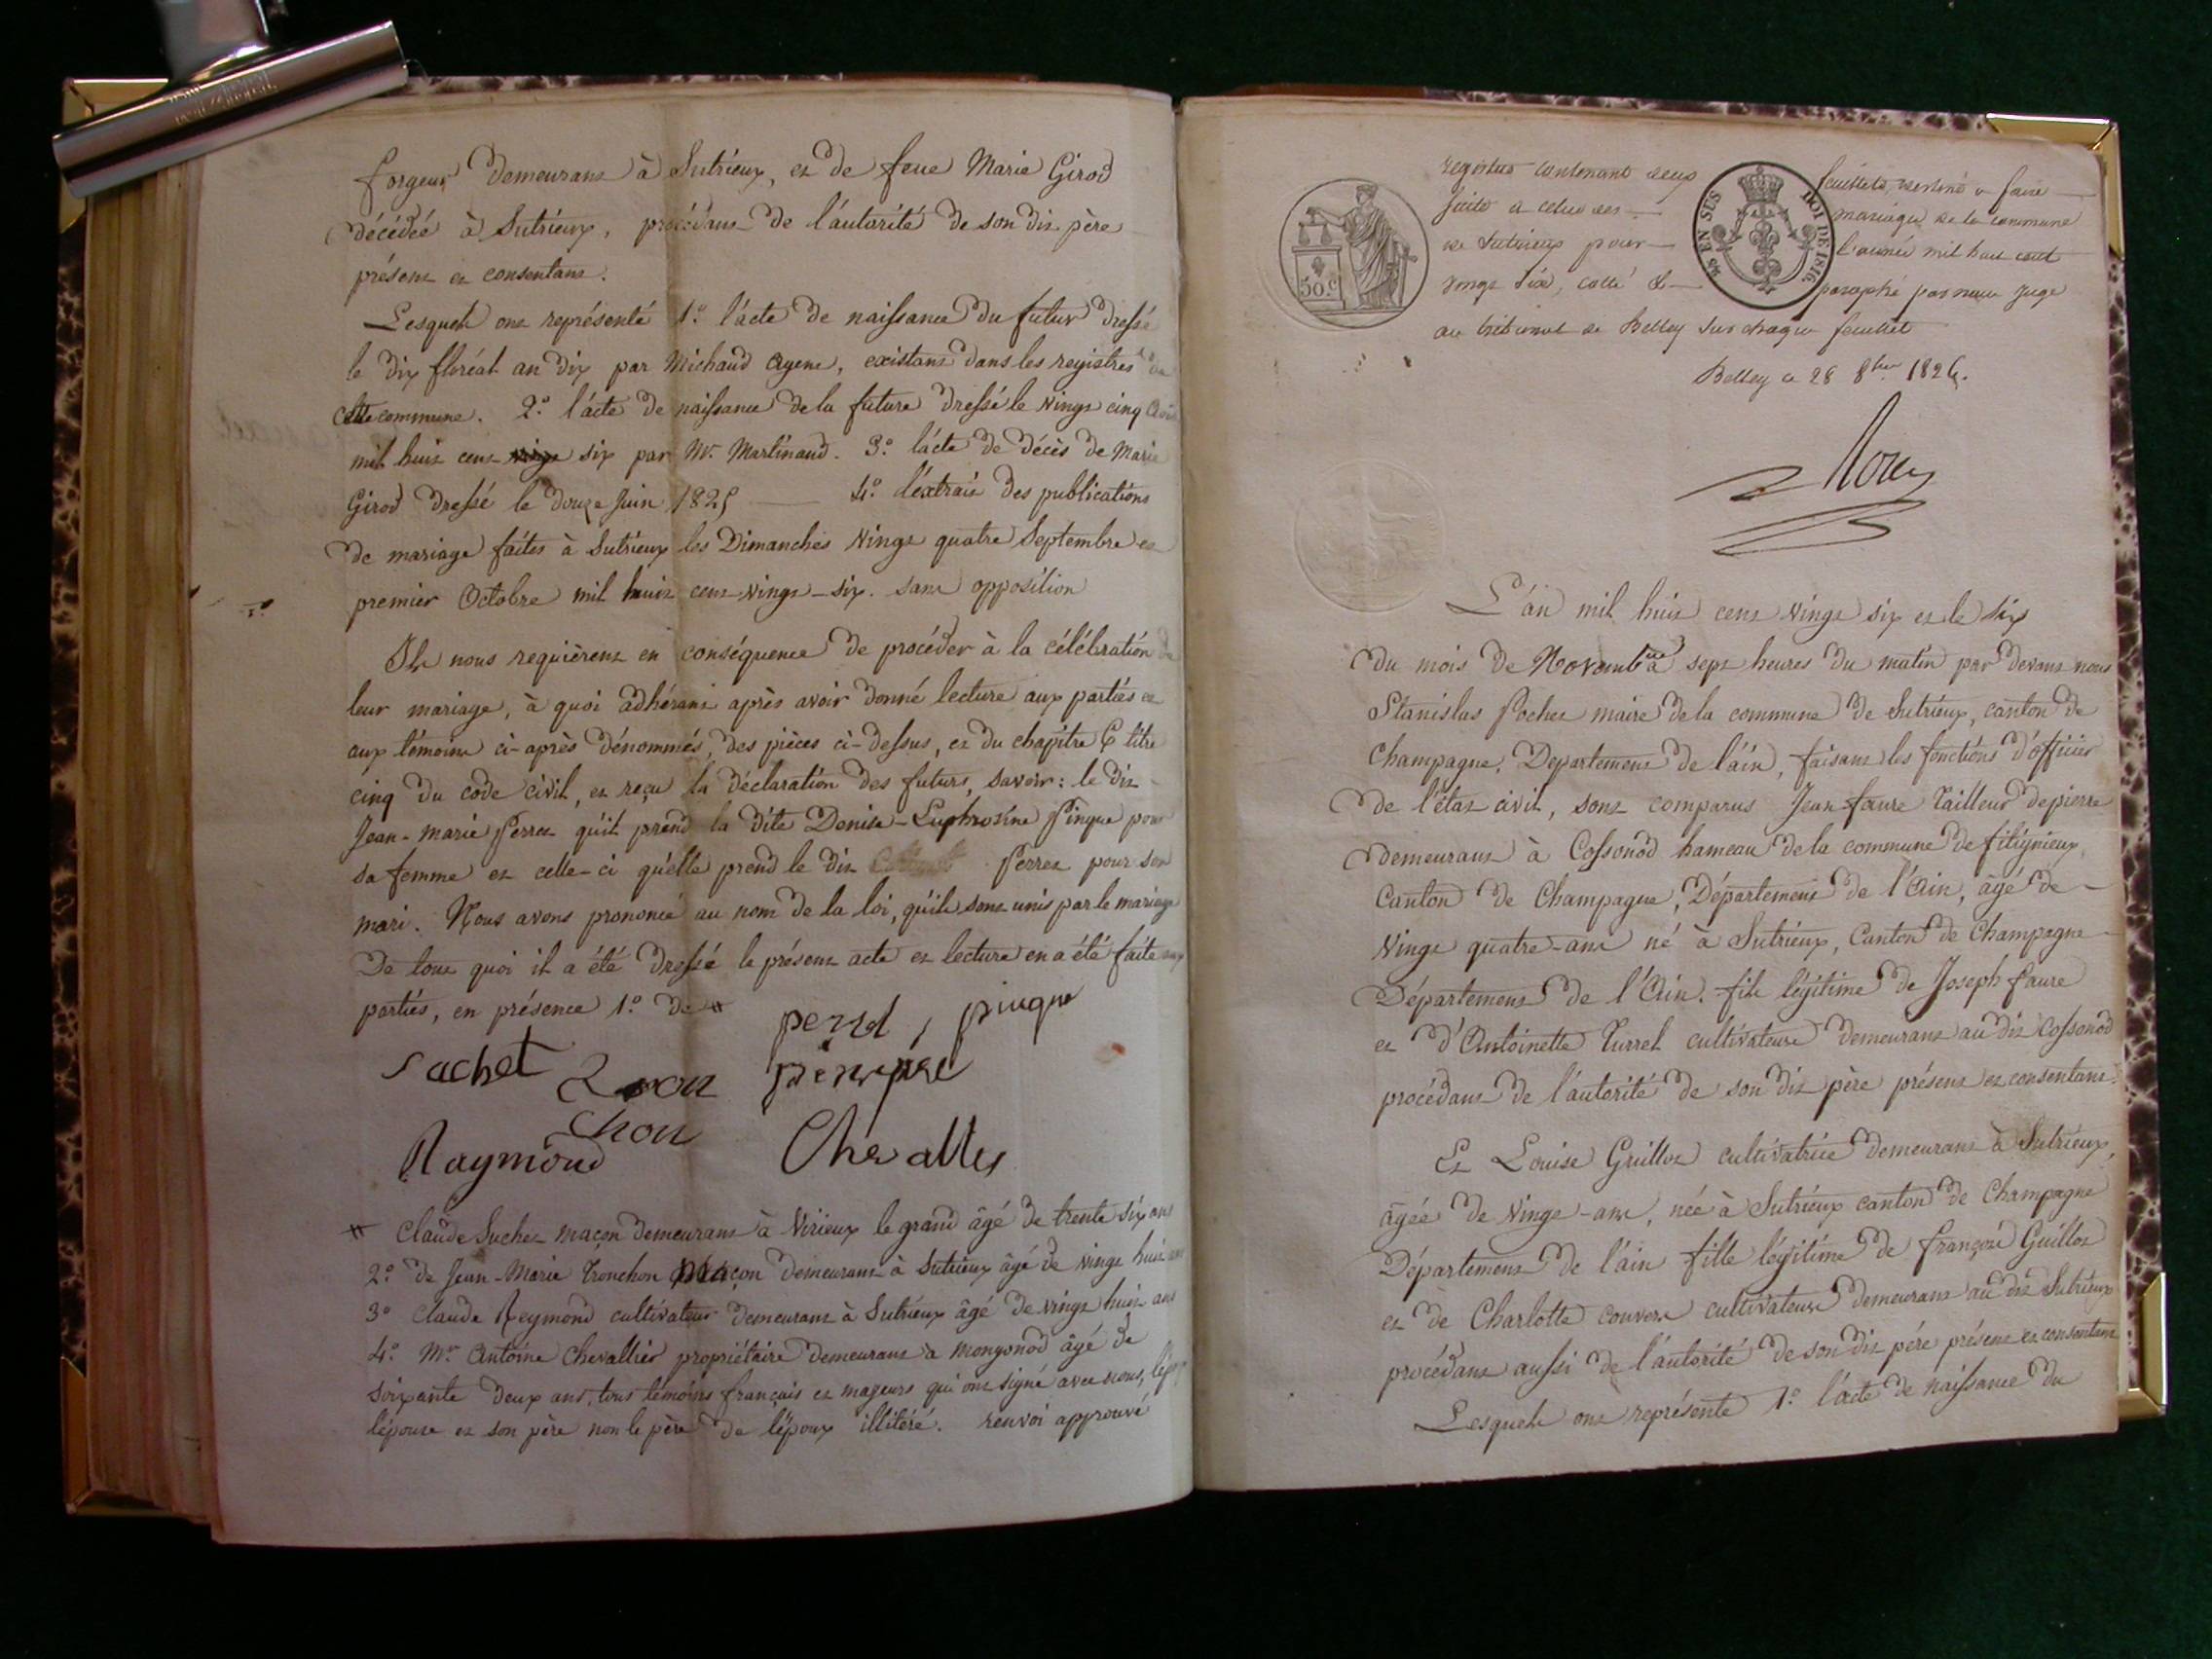 forgeur demeurant à Sutrieux, et de feue Marie Girod
décédée à Sutrieux, procédant de l'autorité de son dit père
présent et consentant.
Lesquels ont représenté 1.º l'acte de naissance du futur dressé
le dix floréal an dix par Michaud agent, existant dans les registres de
cette commune. 2.º l'acte de naissance de la future dressé le vingt cinq
mil huit cent six par Mr. Martinand. 3.º l'acte de décès de Marie
Girod dressé le douze Juin 1825 4.º l'extrait des publications
de mariage faites à Sutrieux les Dimanches vingt quatre Septembre et
premier Octobre mil huit cent vingt-six. sans opposition
Ils nous requièrent en conséquence de procéder à la célébration de
leur mariage, à quoi adhérant après avoir donné lecture aux parties et
aux témoins ci-après dénommés, des pièces ci-dessus, et du chapitre 6 titre
cinq du code civil, et reçu la déclaration des futurs, savoir: le dit
Jean-Marie Perret qu'il prend la dite Denise-Euphrosine Pingue pour
sa femme et celle-ci qu'elle prend le dit Perret pour son
mari. Nous avons prononcé au nom de la loi, qu'ils sont unis par le mariage
De tout quoi il a été dressé le présent acte et lecture en a été faite aux
parties, en présence 1.º de #
perret, pingue
Suchet
chon
Raymond Chevallier
# Claude Suchet maçon demeurant à Virieux le grand âgé de trente six ans
2.º de Jean-Marie Tronchon maçon demeurant à Sutrieux âgé de vingt huit ans
3º Claude Reymond cultivateur demeurant à Sutrieux âgé de vingt huit ans
4.º Mr. Antoine Chevallier propriétaire demeurant à Mongonod âgé de
soixante deux ans, tous témoins français et majeurs qui ont signé avec nous,
l'épouse et son père non le père de l'époux illitéré. renvoi approuvé
registre contenant deux feuillets, destiné a faire
suite a celui des mariages de la commune
de Sutrieux pour l'année mil huit cent
vingt six, cotté & paraphé par nous juge
au tribunal de Belley sur chaque feuillet
50.c
LOI DE 1816
EN SUS
Belley le 28 8bre 1826.
L'an mil huit cent vingt six et le six
du mois de Novembre à sept heures du matin par devant nous
Stanislas Pochet maire de la commune de Sutrieux, canton de
Champagne, Departement de l'ain, faisant les fonctions d'officier
de l'état civil, sont comparus Jean faure tailleur de pierre
demeurant à Cossonod hameau de la commune de fitignieux
Canton de Champagne, Département de l'Ain, âgé de
vingt quatre-ans né à Sutrieux, Canton de Champagne
Département de l'Ain. fils légitime de Joseph faure
et d'Antoinette Turrel cultivateurs demeurant au dit Cossonod
procédant de l'autorité de son dit père présent et consentant.
Et Louise Guillot cultivatrice demeurant à Sutrieux,
âgée de vingt-ans, née à Sutrieux canton de Champagne
Département de l'ain fille légitime de françois Guillot
et de Charlotte couvert cultivateurs demeurant au dit Sutrieux
procédant aussi de l'autorité de son dit père présent et consentant
Lesquels ont représenté 1.º l'acte de naissance du